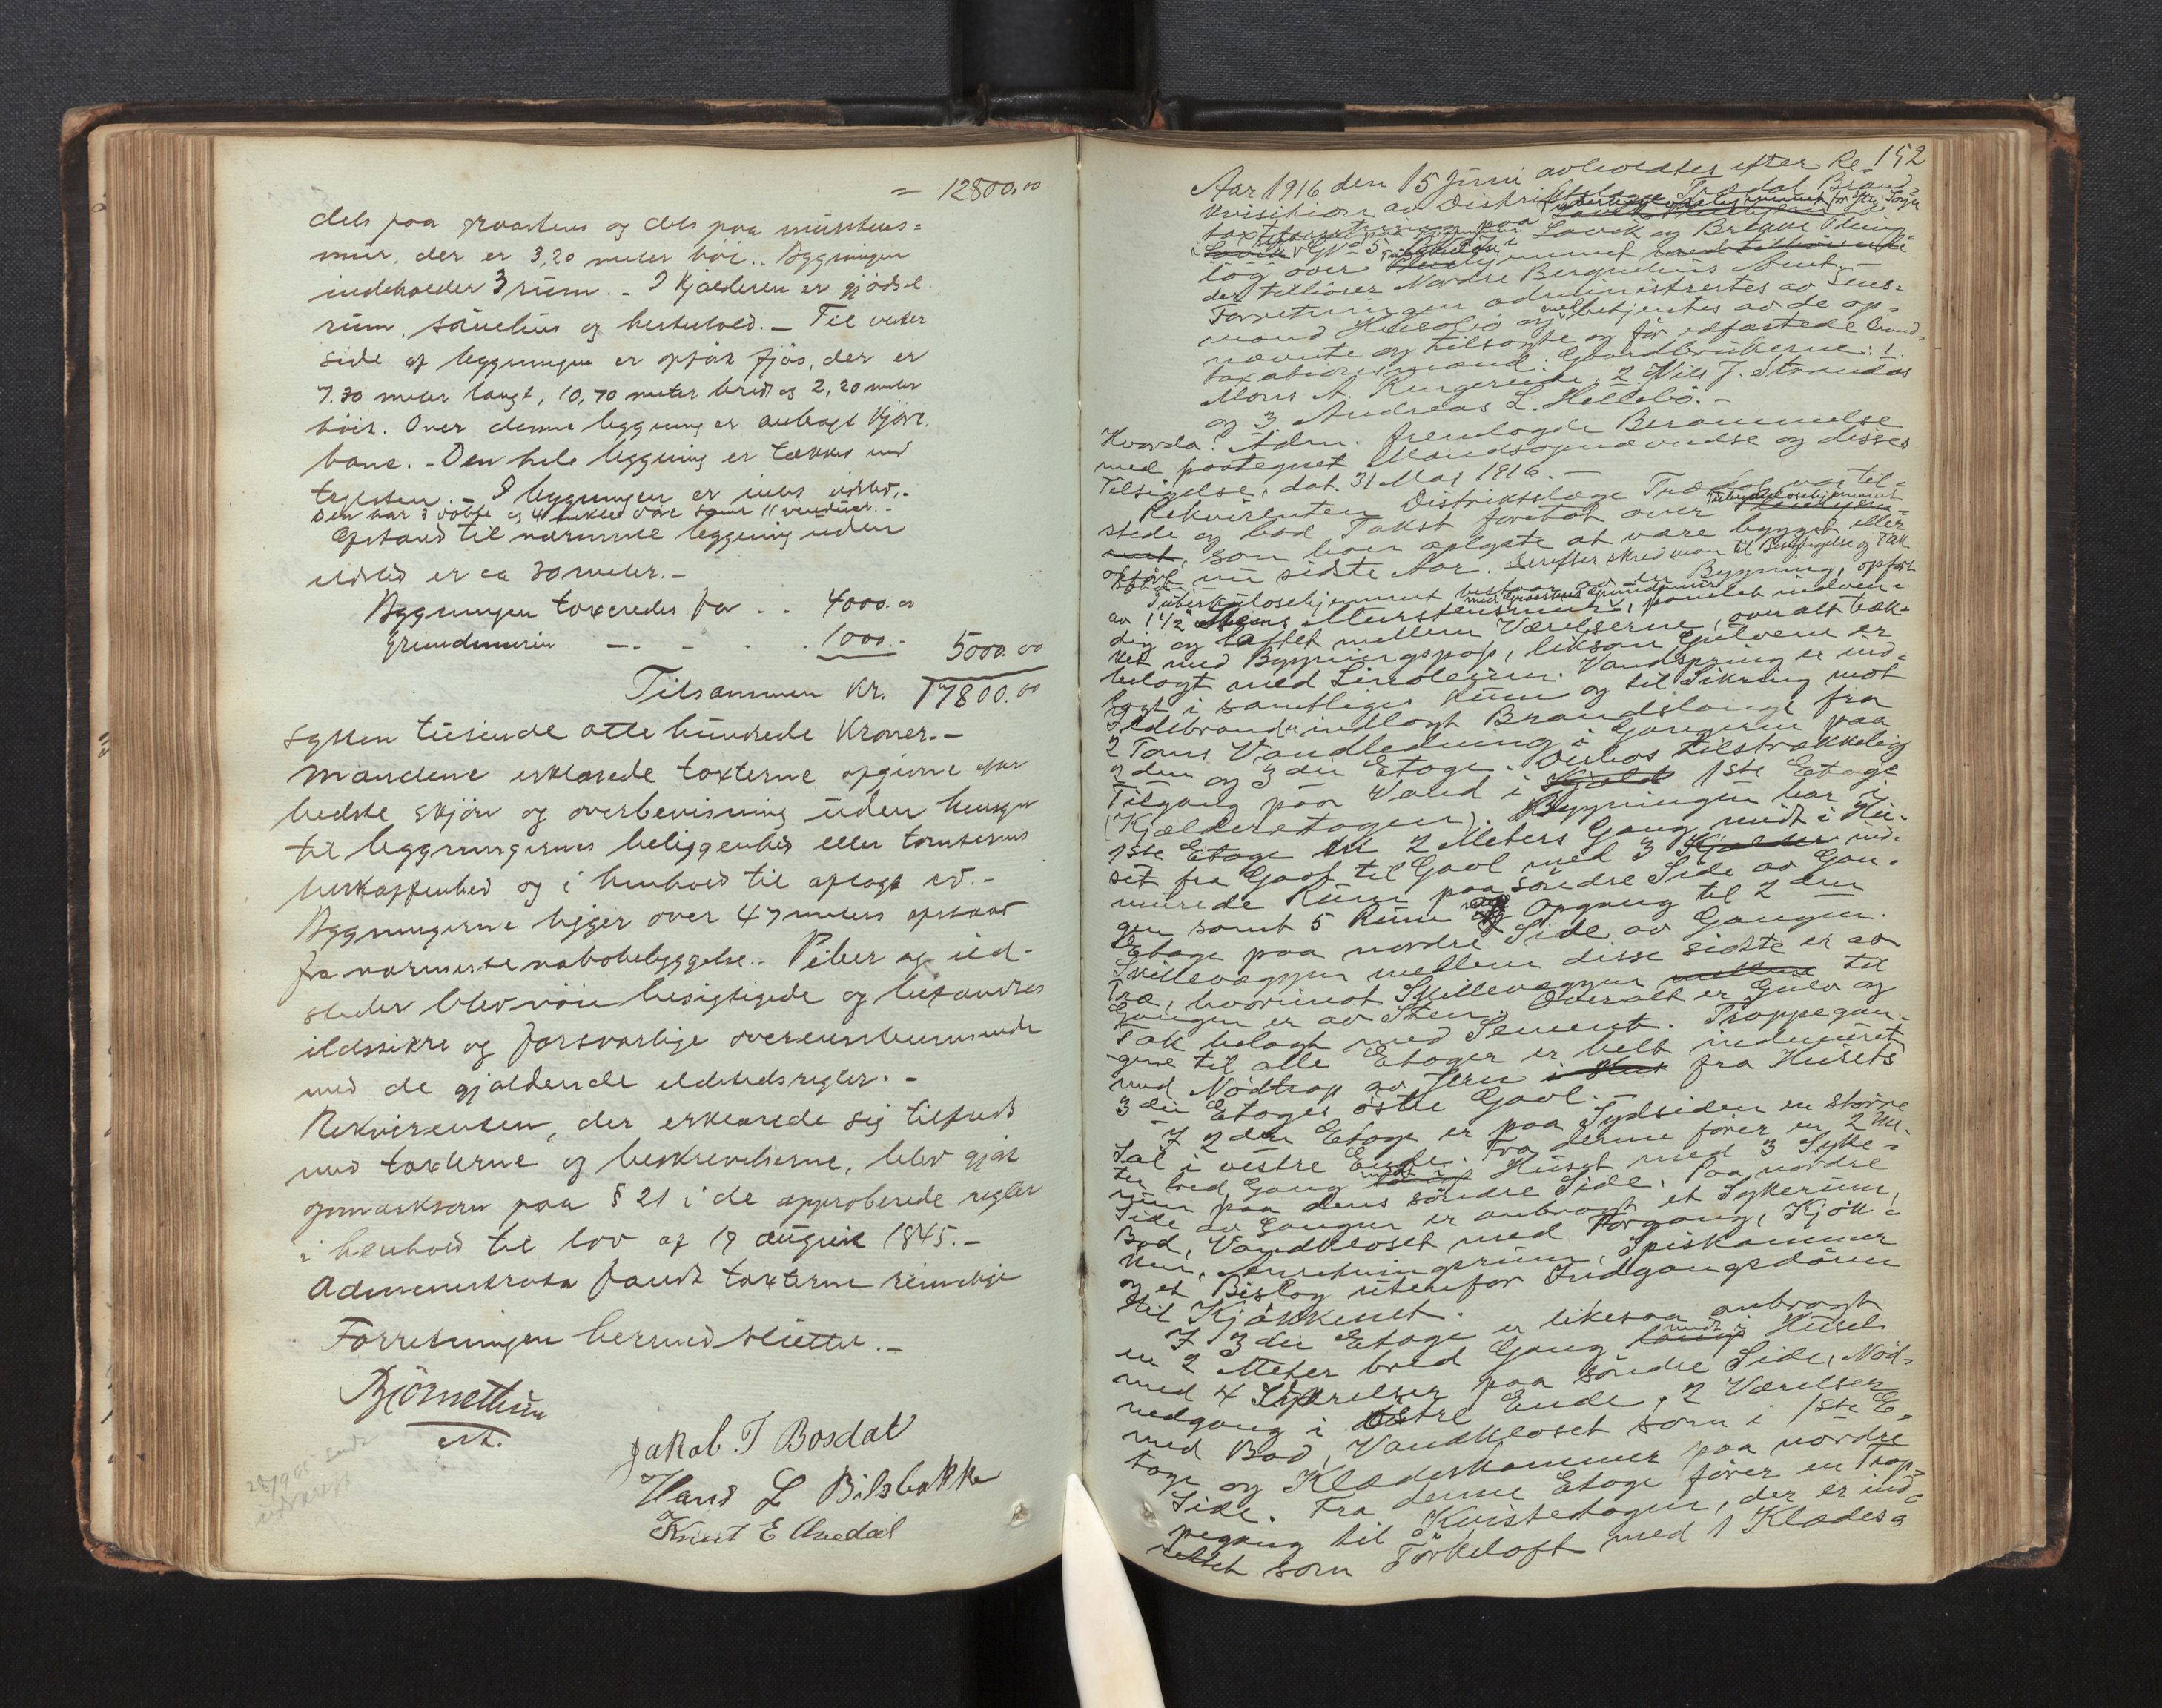 = 12800.00
dels paa graastens og dels paa murstens-
mur, der er 3,20 meter höi.. Bygningen
indeholder 3 rum. - I Kjælderen er gjödsel
rum, sauehus og hestestald. - Til vester
side af bygningen er opfört fjös, der er
7.30 meter langt, 10,70 meter bred og 2,20 meter
höit. Over denne bygning er anbragt kjöre
bane. - Den hele bygning er tækket med
teglsten. - I bygningen er intet ildsted. -
Den har 3 porte og 4 enkle döre samt 11 vinduer. -
Afstand til nærmeste bygning uden
ildsted er ca 30 meter. -
Bygningen taxeredes for .. 4000.00
Grundmuren - . - . . 1000.- 5000.00
Tilsammen Kr. 17800.00
sytten tusinde otte hundrede Kroner. -
Mændene erklærede taxterne afgivne efter
bedste skjön og overbevisning uden hensyn
til bygningernes beliggenhed eller tomternes
beskaffenhed og i henhold til aflagt ed. -
Bygningerne ligger over 47 meters afstand
fra nærmeste nabobebyggelse. - Piber og ild-
steder blev nöie besigtigede og befandtes
ildssikre og forsvarlige overensstemmende
med de gjældende ildstedsregler. -
Rekvirenten, der erklærede sig tilfreds
med taxterne og beskrivelserne, blev gjort
opmærksom paa § 21 i de approberede regler
i henhold til lov af 19 august 1845. -
Administrator fandt taxterne rimelige
Forretningen hermed sluttet. -
Björnethun
est.
Jakob I Bosdal
Hans L Bilsbakke
Knut E Aredal
152
Aar 1916 den 15 Juni avholdtes efter Re-
kvisition av Distriktslæge Trædal Brand-
taxtforretning paa
Gno 5 i Lavik og Brekke Thing-
lag over
der tilhörer Nordre Bergenhus Amt. -
Forretningen administrertes av Lens-
mand og medbetjentes av de op-
nævnte og tilsagte og för edfæstede Brand-
taxationsmænd: Gaardbrukerne: 1.
Mons A. Ringereide, 2 Nils J. Strandos
og 3 Andreas L. Hellebö. -
Hvorda: Adm. fremlagde Berammelse
med paategnet Mandsopnævnelse og disses
Tilsigelse, dat. 31 Mai 1916. -
Rekvirenten Distriktslæge Trædal var til-
stede og bad Takst foretat over Tuberkulosehjemmet
som han oplyste at være bygget eller
opfört nu sidste Aar. Derefter skred man til Besigtigelse og Tak-
Tuberkulosehjemmet bestaar av en Bygning, opfört
av 1 1/2 Stens Murstensmur med Graastens Grundmur, panelet indven-
dig og loftet mellem Værelserne, overalt tæk-
ket med Bygningspap, liksom Gulvene er
belagt med Linoleum. Vandspring er ind-
lagt i samtlige Rum og til Sikring mot
Ildebrand indlagt Brandslange fra
2 Toms Vandledning i Gangerne paa
2den og 3die Etage. Derhos tilstrækkelig
Tilgang paa Vand i Kjæld 1ste Etage
(Kjælderetagen). Bygningen har i
1ste Etage en 2 Meters Gang midt i Hu-
set fra Gavl til Gavl med 3 Kjælder ind-
murede Rum paa söndre Side av Gan-
gen samt 5 Rum og Opgang til 2den
Etage paa nordre Side av Gangen.
Skillevæggen mellem disse sidste er av
Træ, hvorimot Skillevæggen mellem til
Gangen er av Sten. Overalt er Gulv og
Tak belagt med Sement. Trappegan-
gene til alle Etager er helt indmuret
med Nödtrap av Jern i Hus fra Husets
3die Etages östre Gavl. -
I 2den Etage er paa Sydsiden en större
Sal i vestre Ende. Fra denne förer en 2 Me-
ter bred Gang midt i Huset med 3 Syke-
rum paa dens söndre Side. Paa nordre
Side av Gangen er anbragt et Sykerum,
Bad, Vandkloset med Forgang, Kjök-
ken, Anretningsrum, Spiskammer
og et Bislag utenfor Indgangsdören
til Kjökkenet.
I 3die Etage er likesaa anbragt
en 2 Meter bred Gang midt i Huset
med 4 Værelser paa söndre Side, Nöd-
nedgang i östre Ende, 2 Værelser
med Bad, Vandkloset som i 1ste E-
tage og Klædeskammer paa nordre
Side. Fra denne Etage förer en Trap-
pegang til Kvistetagen, der er ind-
rettet som Törkeloft med 1 Klædes-